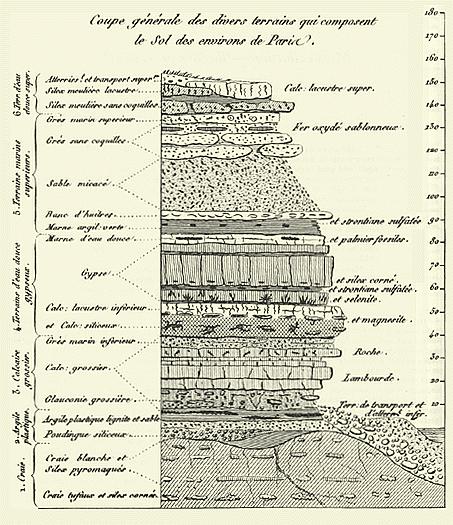 Coupe générale des divers terrains qui composent
le Sol des environs de Paris.
180
170
160
150
140
130
120
110
100
90
80
70
60
50
40
30
20
10
6. Terr. d'eau
douce super.
Atterriss.t et transport super.r
Silex meulière lacustre
Calc. lacustre super.
Silex meulière sans coquilles
5. Terrains marins
superieurs.
Grès marin superieur
Fer oxydé sablonneux.
Grès sans coquilles
Sable micacé
Banc d'huitres
et strontiane sulfatée
Marne argil. verte
4. Terrains d'eau douce
gypseux.
Marne d'eau douce
et palmier fossiles.
Gypse
et silex corné
et strontiane sulfatée.
et selenite.
Calc. lacustre inférieur
et Calc. siliceux
et magnesite.
3. Calcaire
grossier.
Grès marin inferieur
Roche.
Calc. grossier
Lambourde.
Glauconie grossière
Terr. de transport et
d'atterrit infer.
2. Argile
plastique.
Argile plastique lignite et sable
Poudingue siliceux
1. Craie
Craie blanche et
Silex pyromaques
Craie tufau et silex cornés